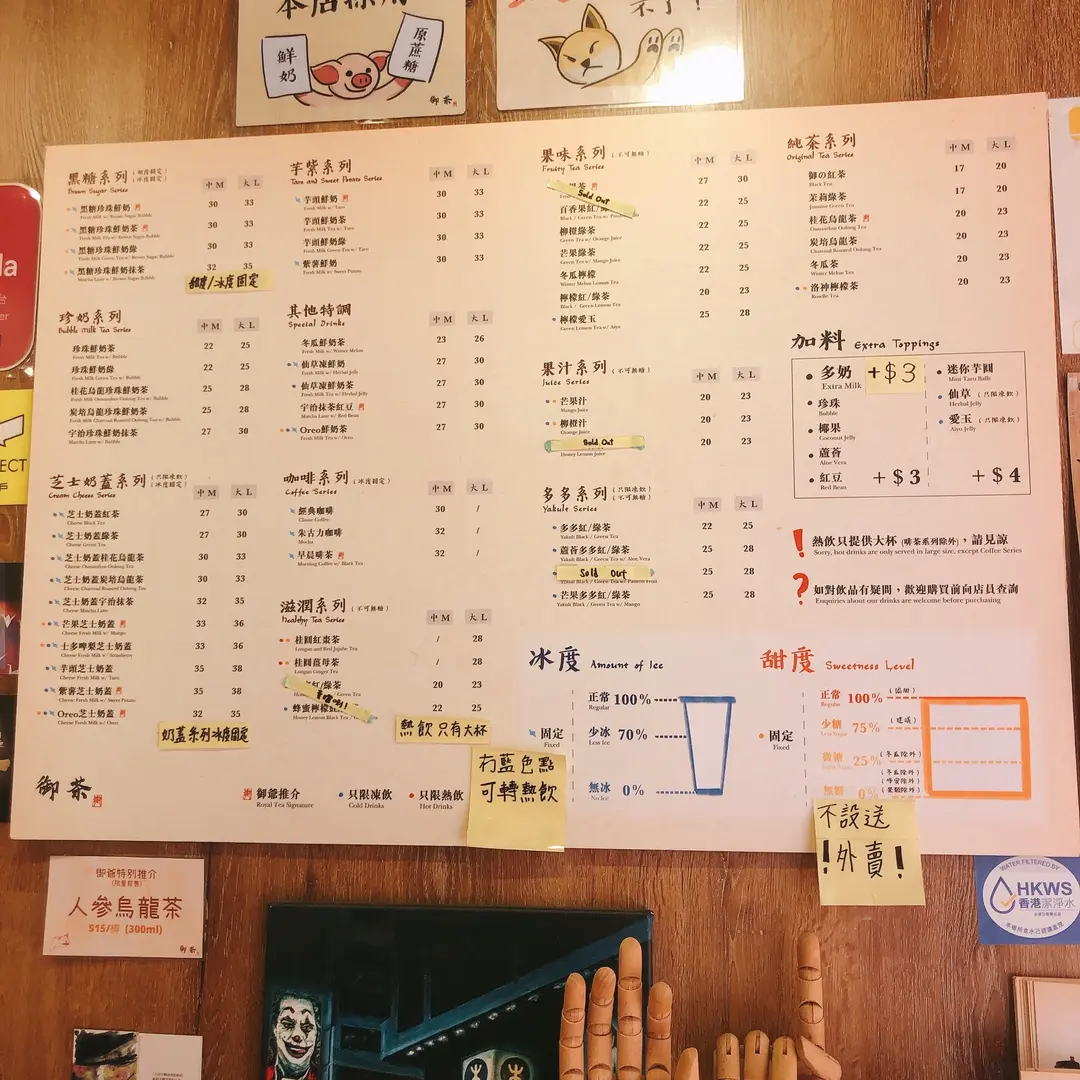 本店採用
鮮奶
原蔗糖
御茶
黑糖系列 (甜度固定)(冰度固定)
Brown Sugar Series
中 M 大 L
黑糖珍珠鮮奶 30 33
Fresh Milk w/ Brown Sugar Bubble
黑糖珍珠鮮奶茶 30 33
Fresh Milk Tea w/ Brown Sugar Bubble
黑糖珍珠鮮奶綠 30 33
Fresh Milk Green Tea w/ Brown Sugar Bubble
黑糖珍珠鮮奶抹茶 32 35
Matcha Latte w/ Brown Sugar Bubble
甜度/冰度固定
珍奶系列
Bubble Milk Tea Series
中 M 大 L
珍珠鮮奶茶 22 25
Fresh Milk Tea w/ Bubble
珍珠鮮奶綠 22 25
Fresh Milk Green Tea w/ Bubble
桂花烏龍珍珠鮮奶茶 25 28
Fresh Milk Osmanthus Oolong Tea w/ Bubble
炭培烏龍珍珠鮮奶茶 25 28
Fresh Milk Charcoal Roasted Oolong Tea w/ Bubble
宇治珍珠鮮奶抹茶 27 30
Matcha Latte w/ Bubble
芝士奶蓋系列 (只限凍飲)(冰度固定)
Cream Cheese Series
中 M 大 L
芝士奶蓋紅茶 27 30
Cheese Black Tea
芝士奶蓋綠茶 27 30
Cheese Green Tea
芝士奶蓋桂花烏龍茶 30 33
Cheese Osmanthus Oolong Tea
芝士奶蓋炭培烏龍茶 30 33
Cheese Charcoal Roasted Oolong Tea
芝士奶蓋宇治抹茶 32 35
Cheese Matcha Latte
芒果芝士奶蓋 33 36
Cheese Fresh Milk w/ Mango
士多啤梨芝士奶蓋 33 36
Cheese Fresh Milk w/ Strawberry
芋頭芝士奶蓋 35 38
Cheese Fresh Milk w/ Taro
紫薯芝士奶蓋 35 38
Cheese Fresh Milk w/ Sweet Potato
Oreo芝士奶蓋 32 35
Cheese Fresh Milk w/ Oreo
奶蓋系列冰度固定
芋紫系列
Taro and Sweet Potato Series
中 M 大 L
芋頭鮮奶 30 33
Fresh Milk w/ Taro
芋頭鮮奶茶 30 33
Fresh Milk Tea w/ Taro
芋頭鮮奶綠 30 33
Fresh Milk Green Tea w/ Taro
紫薯鮮奶 30 33
Fresh Milk w/ Sweet Potato
其他特調
Special Drinks
中 M 大 L
冬瓜鮮奶茶 23 26
Fresh Milk w/ Winter Melon
仙草凍鮮奶 27 30
Fresh Milk w/ Herbal Jelly
仙草凍鮮奶茶 27 30
Fresh Milk Tea w/ Herbal Jelly
宇治抹茶紅豆 27 30
Matcha Latte w/ Red Bean
Oreo鮮奶茶 27 30
Fresh Milk Tea w/ Oreo
咖啡系列 (冰度固定)
Coffee Series
中 M 大 L
經典咖啡 30 /
Classic Coffee
朱古力咖啡 32 /
Mocha
早晨啡茶 32 /
Morning Coffee w/ Black Tea
滋潤系列 (不可無糖)
Healthy Tea Series
中 M 大 L
桂圓紅棗茶 / 28
Longan and Red Jujube Tea
桂圓薑母茶 / 28
Longan Ginger Tea
紅/綠茶 20 23
Green Tea
蜂蜜檸檬紅 22 25
Honey Lemon Black Tea
熱飲 只有大杯
冇藍色點
可轉熱飲
果味系列 (不可無糖)
Fruity Tea Series
中 M 大 L
果茶 27 30
Sold Out
百香果紅/ 22 25
Black / Green Tea w/
柳橙綠茶 22 25
Green Tea w/ Orange Juice
芒果綠茶 22 25
Green Tea w/ Mango Juice
冬瓜檸檬 22 25
Winter Melon Lemon Tea
檸檬紅/綠茶 20 23
Black / Green Lemon Tea
檸檬愛玉 25 28
Green Lemon Tea w/ Aiyu
果汁系列 (不可無糖)
Juice Series
中 M 大 L
芒果汁 20 23
Mango Juice
柳橙汁 20 23
Orange Juice
Sold Out 20 23
Honey Lemon Juice
多多系列 (只限凍飲)(不可無糖)
Yakult Series
中 M 大 L
多多紅/綠茶 22 25
Yakult Black / Green Tea
蘆薈多多紅/綠茶 25 28
Yakult Black / Green Tea w/ Aloe Vera
Sold Out 25 28
Yakult Black / Green Tea w/ Passion Fruit
芒果多多紅/綠茶 25 28
Yakult Black / Green Tea w/ Mango
純茶系列
Original Tea Series
中 M 大 L
御の紅茶 17 20
Black Tea
茉莉綠茶 17 20
Jasmine Green Tea
桂花烏龍茶 20 23
Osmanthus Oolong Tea
炭培烏龍茶 20 23
Charcoal Roasted Oolong Tea
冬瓜茶 20 23
Winter Melon Tea
洛神檸檬茶 20 23
Roselle Tea
加料 Extra Toppings
多奶 +$3
Extra Milk
珍珠
Bubble
椰果
Coconut Jelly
蘆薈
Aloe Vera
紅豆 +$3
Red Bean
迷你芋圓
Mini Taro Balls
仙草 (只限凍飲)
Herbal Jelly
愛玉 (只限凍飲)
Aiyu Jelly
+$4
熱飲只提供大杯 (啡茶系列除外)，請見諒
Sorry, hot drinks are only served in large size, except Coffee Series
如對飲品有疑問，歡迎購買前向店員查詢
Enquiries about our drinks are welcome before purchasing
冰度 Amount of Ice
固定
Fixed
正常 100%
Regular
少冰 70%
Less Ice
無冰 0%
No Ice
甜度 Sweetness Level
固定
Fixed
正常 100% (偏甜)
Regular
少糖 75% (建議)
Less Sugar
微糖 25% (冬瓜除外)
無糖 0% (冬瓜除外)(蜂蜜除外)(果類除外)
不設送
!外賣!
御茶
御爺推介
Royal Tea Signature
只限凍飲
Cold Drinks
只限熱飲
Hot Drinks
御爺特別推介
(限量發售)
人參烏龍茶
$15/樽 (300ml)
御茶
WATER FILTERED BY
HKWS
香港潔淨水
ECT
戶
la
台
er